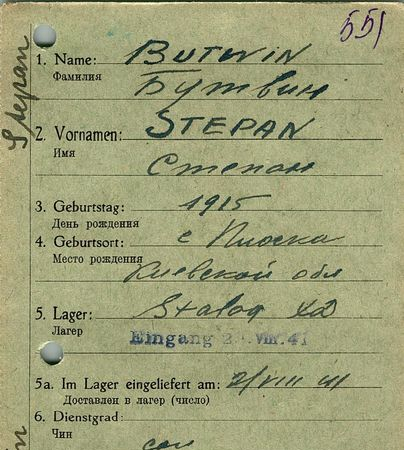 551
1. Name: BUTWIN
Фамилия Бутвин
2. Vornamen: STEPAN
Имя Степан
3. Geburtstag: 1915
День рождения
4. Geburtsort: с Плоска
Место рождения Киевской обл
5. Lager: Stalag XD
Лагер
Eingang 2 VIII. 41
5a. Im Lager eingeliefert am: 2/VIII 41
Доставлен в лагер (число)
6. Dienstgrad:
Чин
Stepan